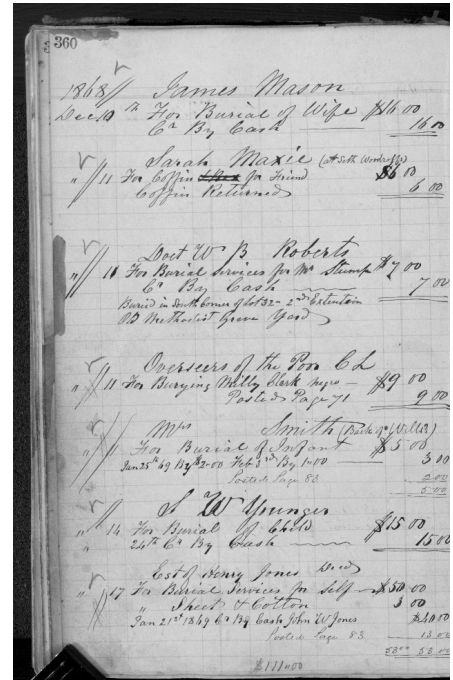 360
1868 James Mason
Dec 10th For Burial of Wife $16 00
Cr By Cash 16 00
Sarah Maxie (at Seth Woodroffs)
" 11 For Coffin for Friend $6 00
Coffin Returned 6 00
Doct W B Roberts
" 11 For Burial Services for Mr Stump $7 00
Cr By Cash 7 00
Buried in South Corner of Lot 32 - 2nd Extention
Old Methodist Grave Yard
Overseers of the Poor C L
" 11 For Burying Milly Clark negro — $9 00
Posted Page 71 9 00
Mrs Smith (Back of Wills)
" 11 For Burial of Infant $5 00
Jan 25th 69 By $2-00 Feb 3rd By 1-00 3 00
Posted Page 83 2 00
5 00
S W Younger
" 14 For Burial of Child $15 00
" 24th Cr By Cash 15 00
Est of Henry Jones Decd
" 17 For Burial Services for Self — $50 00
" Sheet & Cotton 3 00
Jan 21st 1869 Cr By Cash John W Jones $40 00
Posted Page 83 13 00
53 00 53 00
$111 00